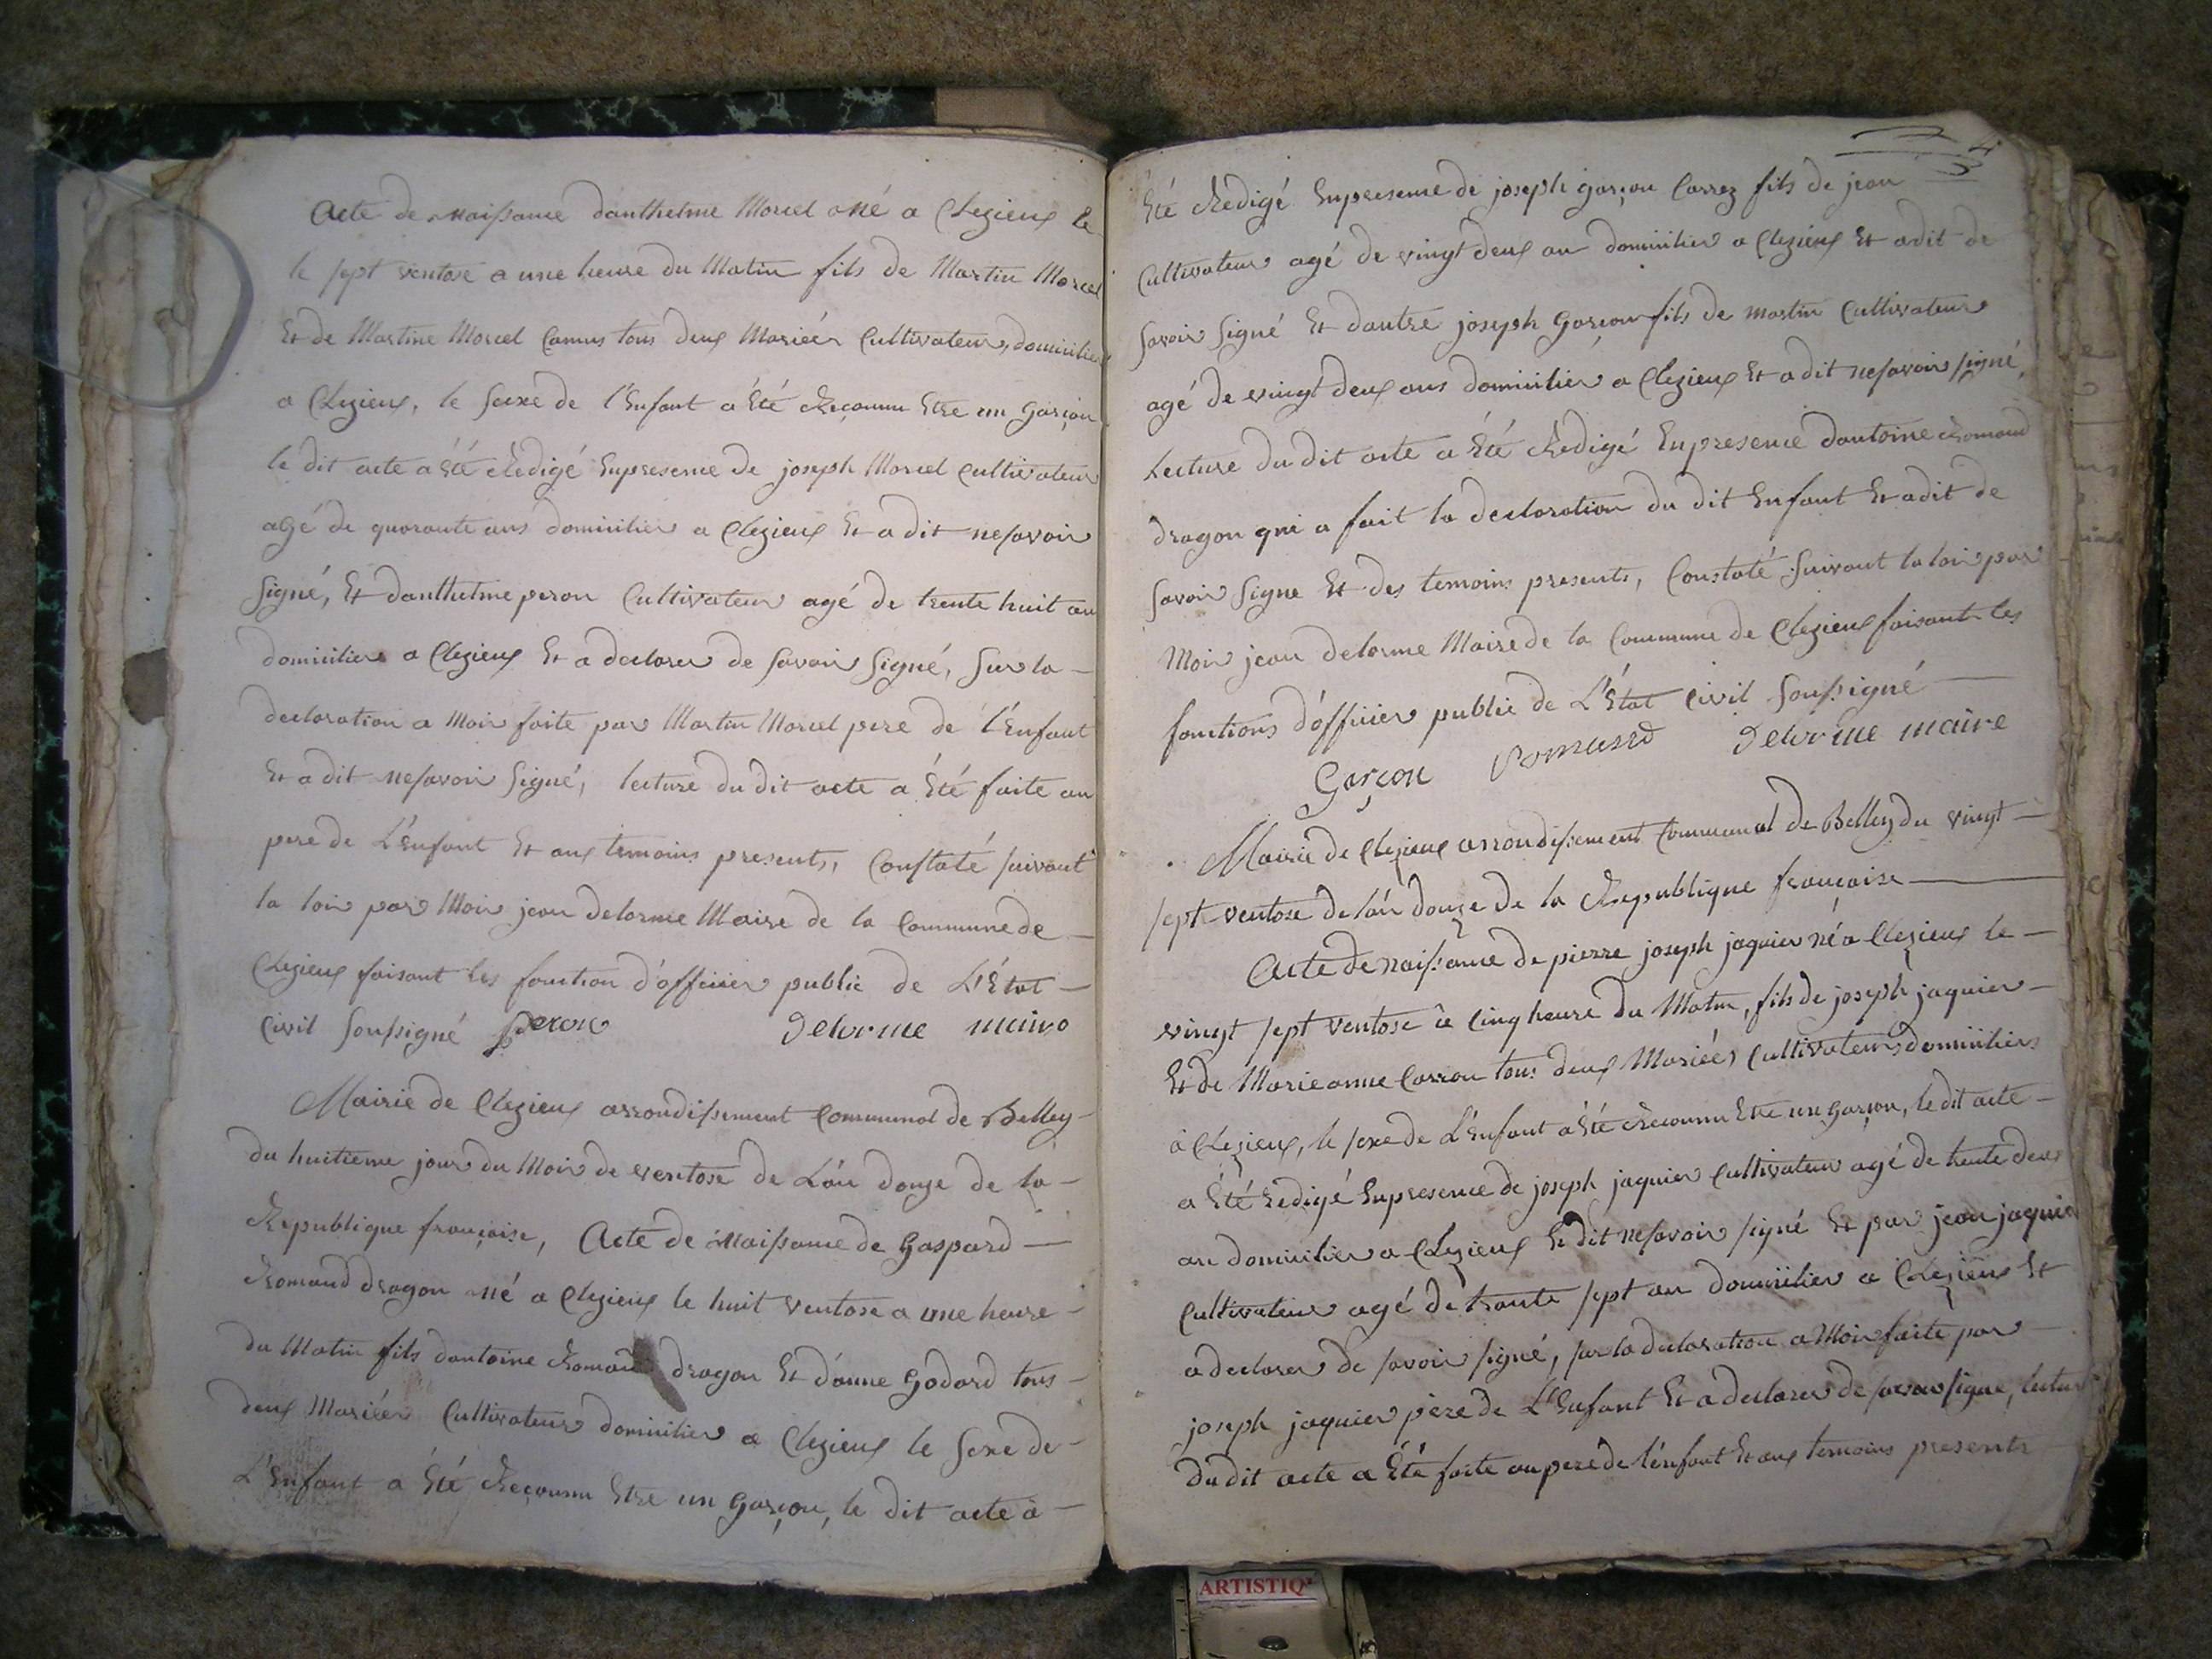 Acte de Naissance d'anthelme Morcel Né a Clezieux le
le sept ventose a une heure du Matin fils de Martin Morcel
Et de Martine Morcel Camus tous deux Mariéer Cultivateur, domicilier
a Clezieux, le sexe de l'Enfant a Été Reconnu Etre un Garçon
le dit acte a Été Redigé En presence de joseph Morcel Cultivateur
agé de quarante ans domicilier a Clezieux Et a dit ne savoir
signé, Et d'anthelme peron Cultivateur agé de trente huit an
domicilier a Clezieux Et a declarer de savoir signé, sur la
declaration a Moir faite par Martin Morcel pere de l'Enfant
Et a dit ne savoir signé, lecture du dit acte a Été faite au
pere de L'Enfant Et aux temoins presents, Constaté suivant
la loir par Moir jean delorme Maire de la Commune de
Clezieux faisant les fonction d'officier public de L'Etat
Civil soussigné peron Delorme maire
Mairie de Clezieux arrondissement Communal de Belley
du huitieme jour du Moir de ventose de L'an douze de la
Republique françoise, Acte de Naissance de Gaspard
Romand dragon né a Clezieux le huit ventose a une heure
du Matin fils d'antoine Romand dragon Et d'anne Godard tous
deux Mariéer Cultivateur domicilier a Clezieux le sexe de
L'Enfant a Été Reconnu Etre un Garçon, le dit acte à
4
Été Redigé En presence de joseph Garçon Carrez fils de jean
Cultivateur agé de vingt deux an domicilier a Clezieux Et a dit de
savoir signé Et d'autre joseph Garçon fils de martin Cultivateur
agé de vingt deux ans domicilier a Clezieux Et a dit ne savoir signé,
Lecture du dit acte a Été Redigé En presence d'antoine Romand
dragon qui a fait la declaration du dit Enfant Et a dit de
savoir signe Et des temoins presents, Constaté suivant la loir par
Moir jean delorme Maire de la Commune de Clezieux faisant les
fonctions d'officier public de L'Etat Civil soussigné
Garçon Romand Delorme maire
Mairie de Clezieux arrondissement Communal de Belley du vingt
sept ventose de l'an douze de la Republique françoise
Acte de naissance de pierre joseph jaquier né a Clezieux le
vingt sept ventose à cinq heure du Matin, fils de joseph jaquier
Et de Marie anne Carron tous deux Mariéer, Cultivateurs domicilier
à Clezieux, le sexe de L'Enfant a Été Reconnu Etre un garçon, le dit acte
a Été redigé En presence de joseph jaquier Cultivateur agé de trente deux
an domicilier a Clezieux Et dit ne savoir signé Et par jean jaquier
Cultivateur agé de trante sept an domicilier a Clezieux Et
a declarer de savoir signé, sur la declaration a Moir faite par
joseph jaquier père de L'Enfant Et a declarer de savoir signe, lecture
du dit acte a Été faite au pere de l'enfant Et aux temoins presents
ARTISTIQ